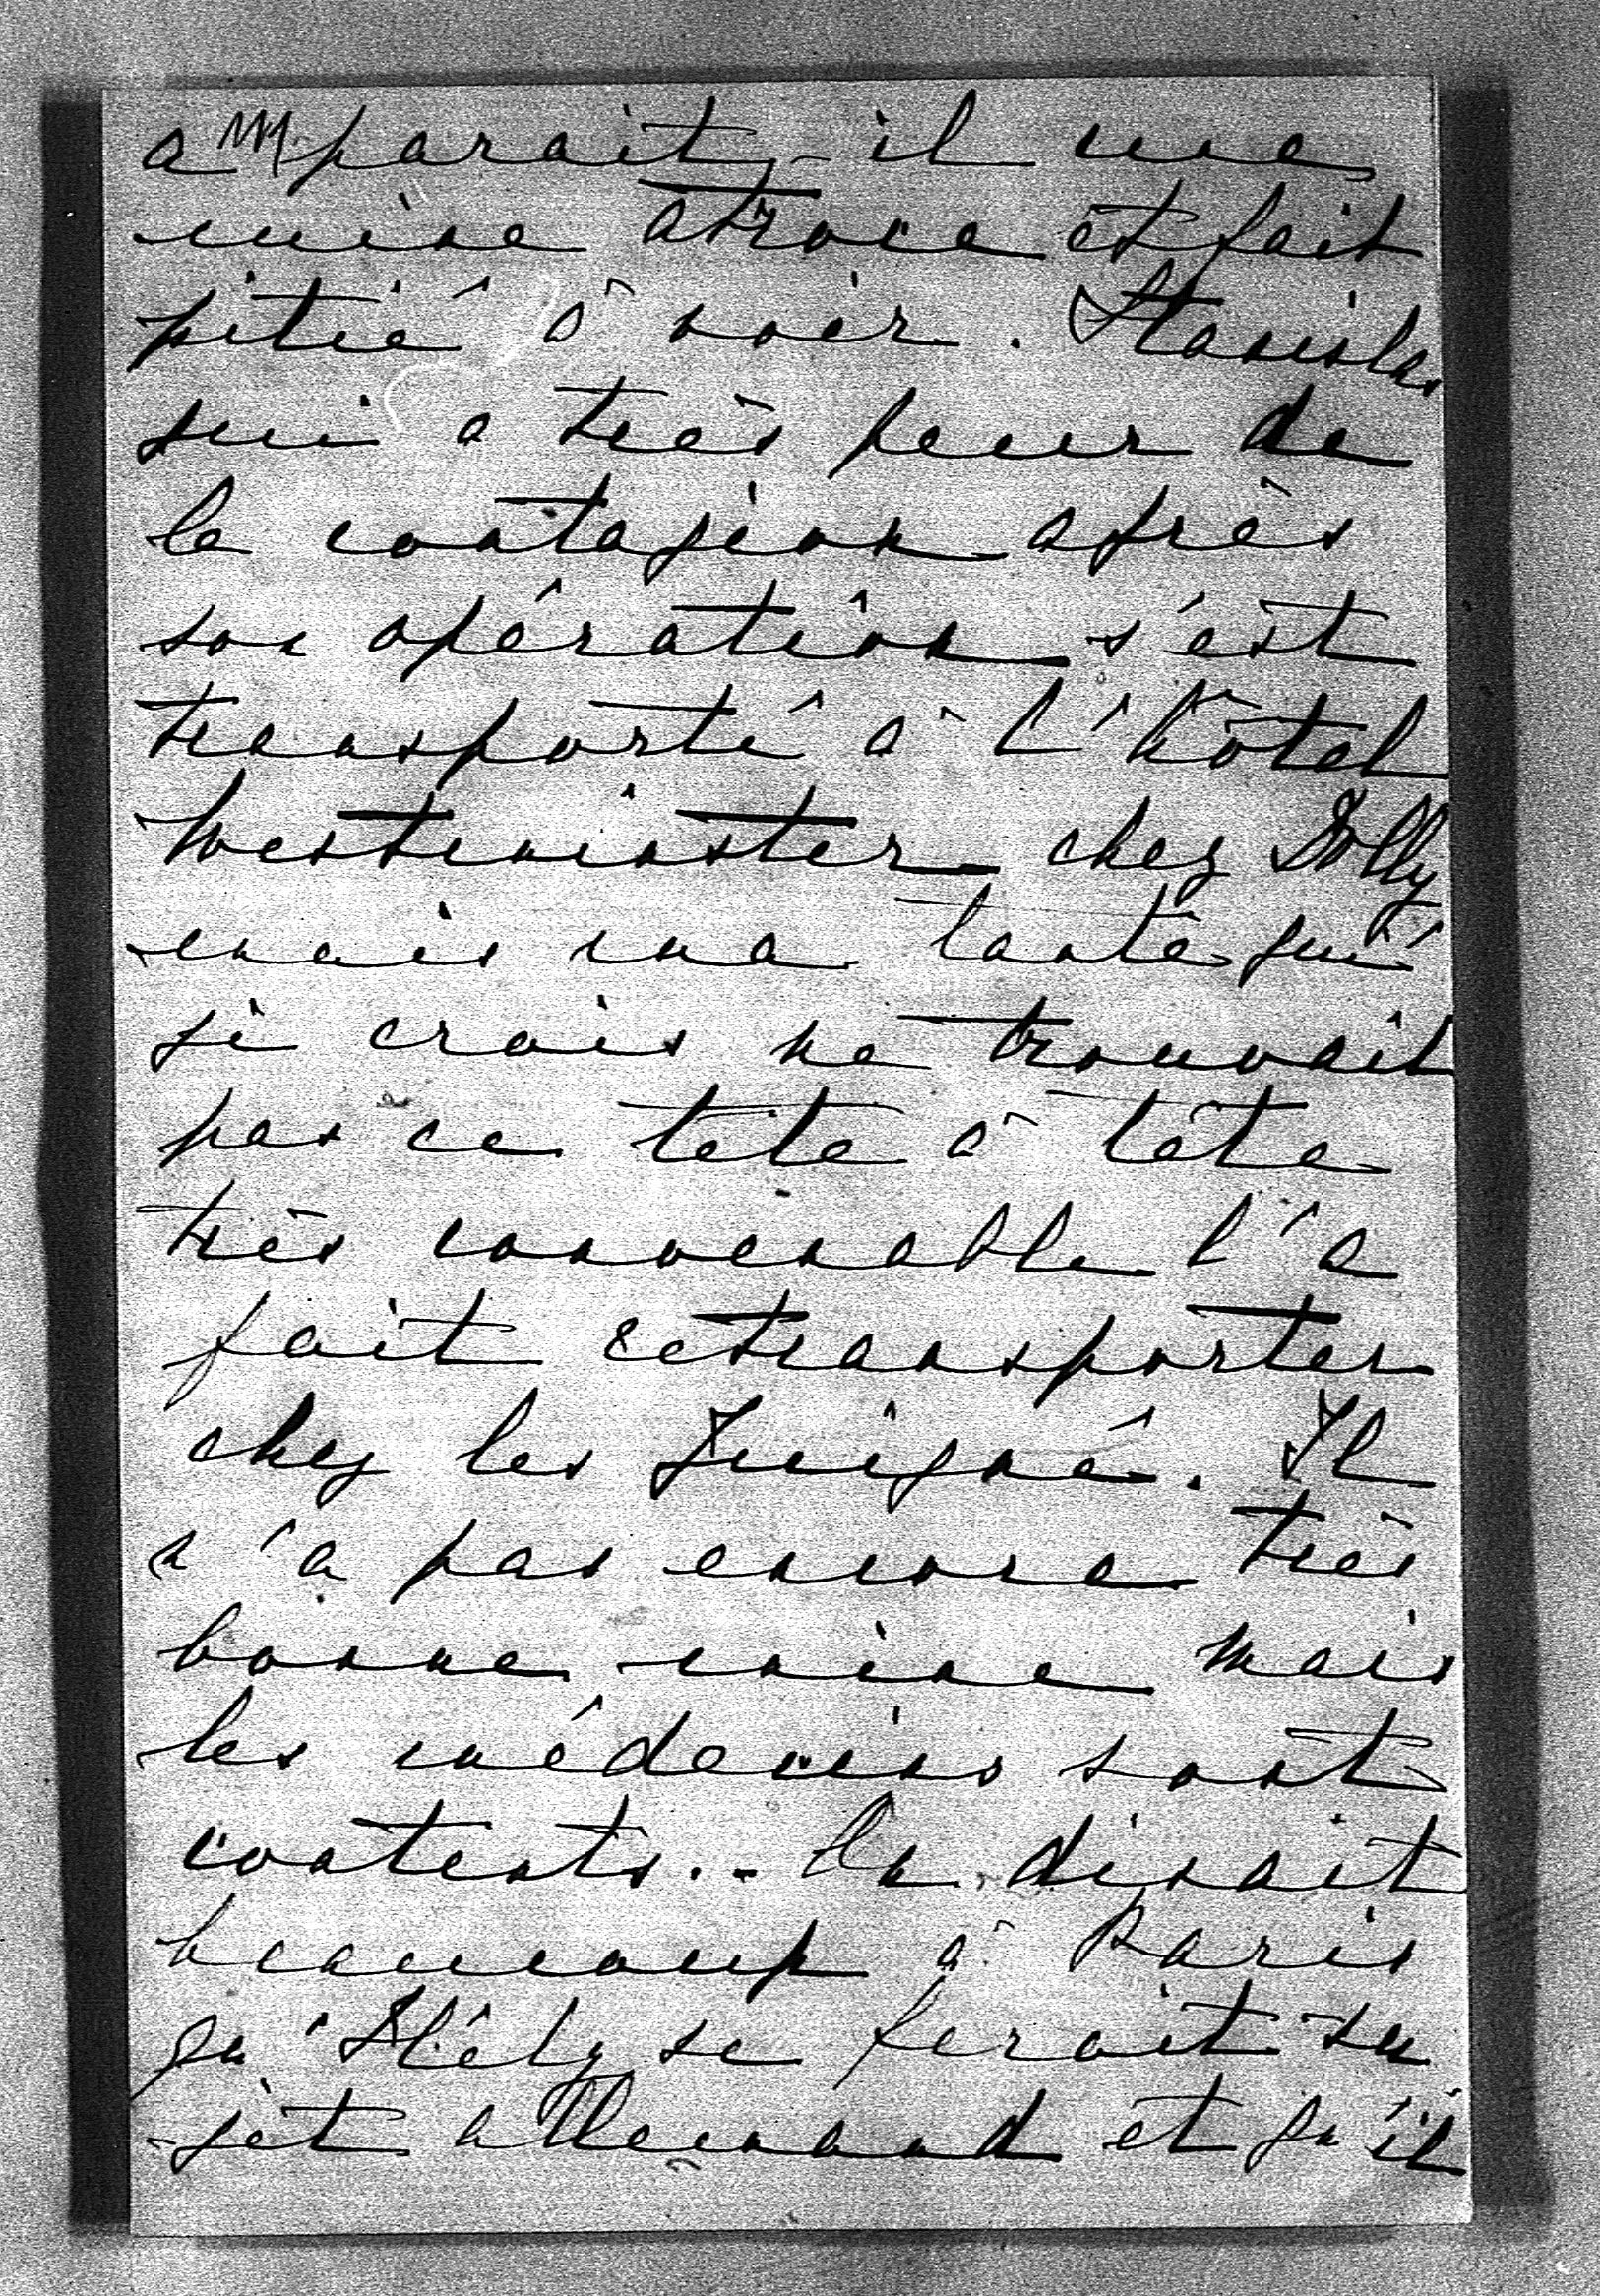 a parait-il une
mine atroce et fait
pitié à voir. Stanislas
qui a très peur de
la contagion après
son opération s'est
transporté à l'hôtel
Westminster chez Dolly
mais ma tante qui
je crois ne trouvait
pas ce tête à tête
très convenable l'a
fait retransporter
chez les Juigné. Il
n'a pas encore très
bonne mine mais
les médecins sont
contents.. On disait
beaucoup à Paris
qu'Hély se ferait su
jet allemand et qu'il